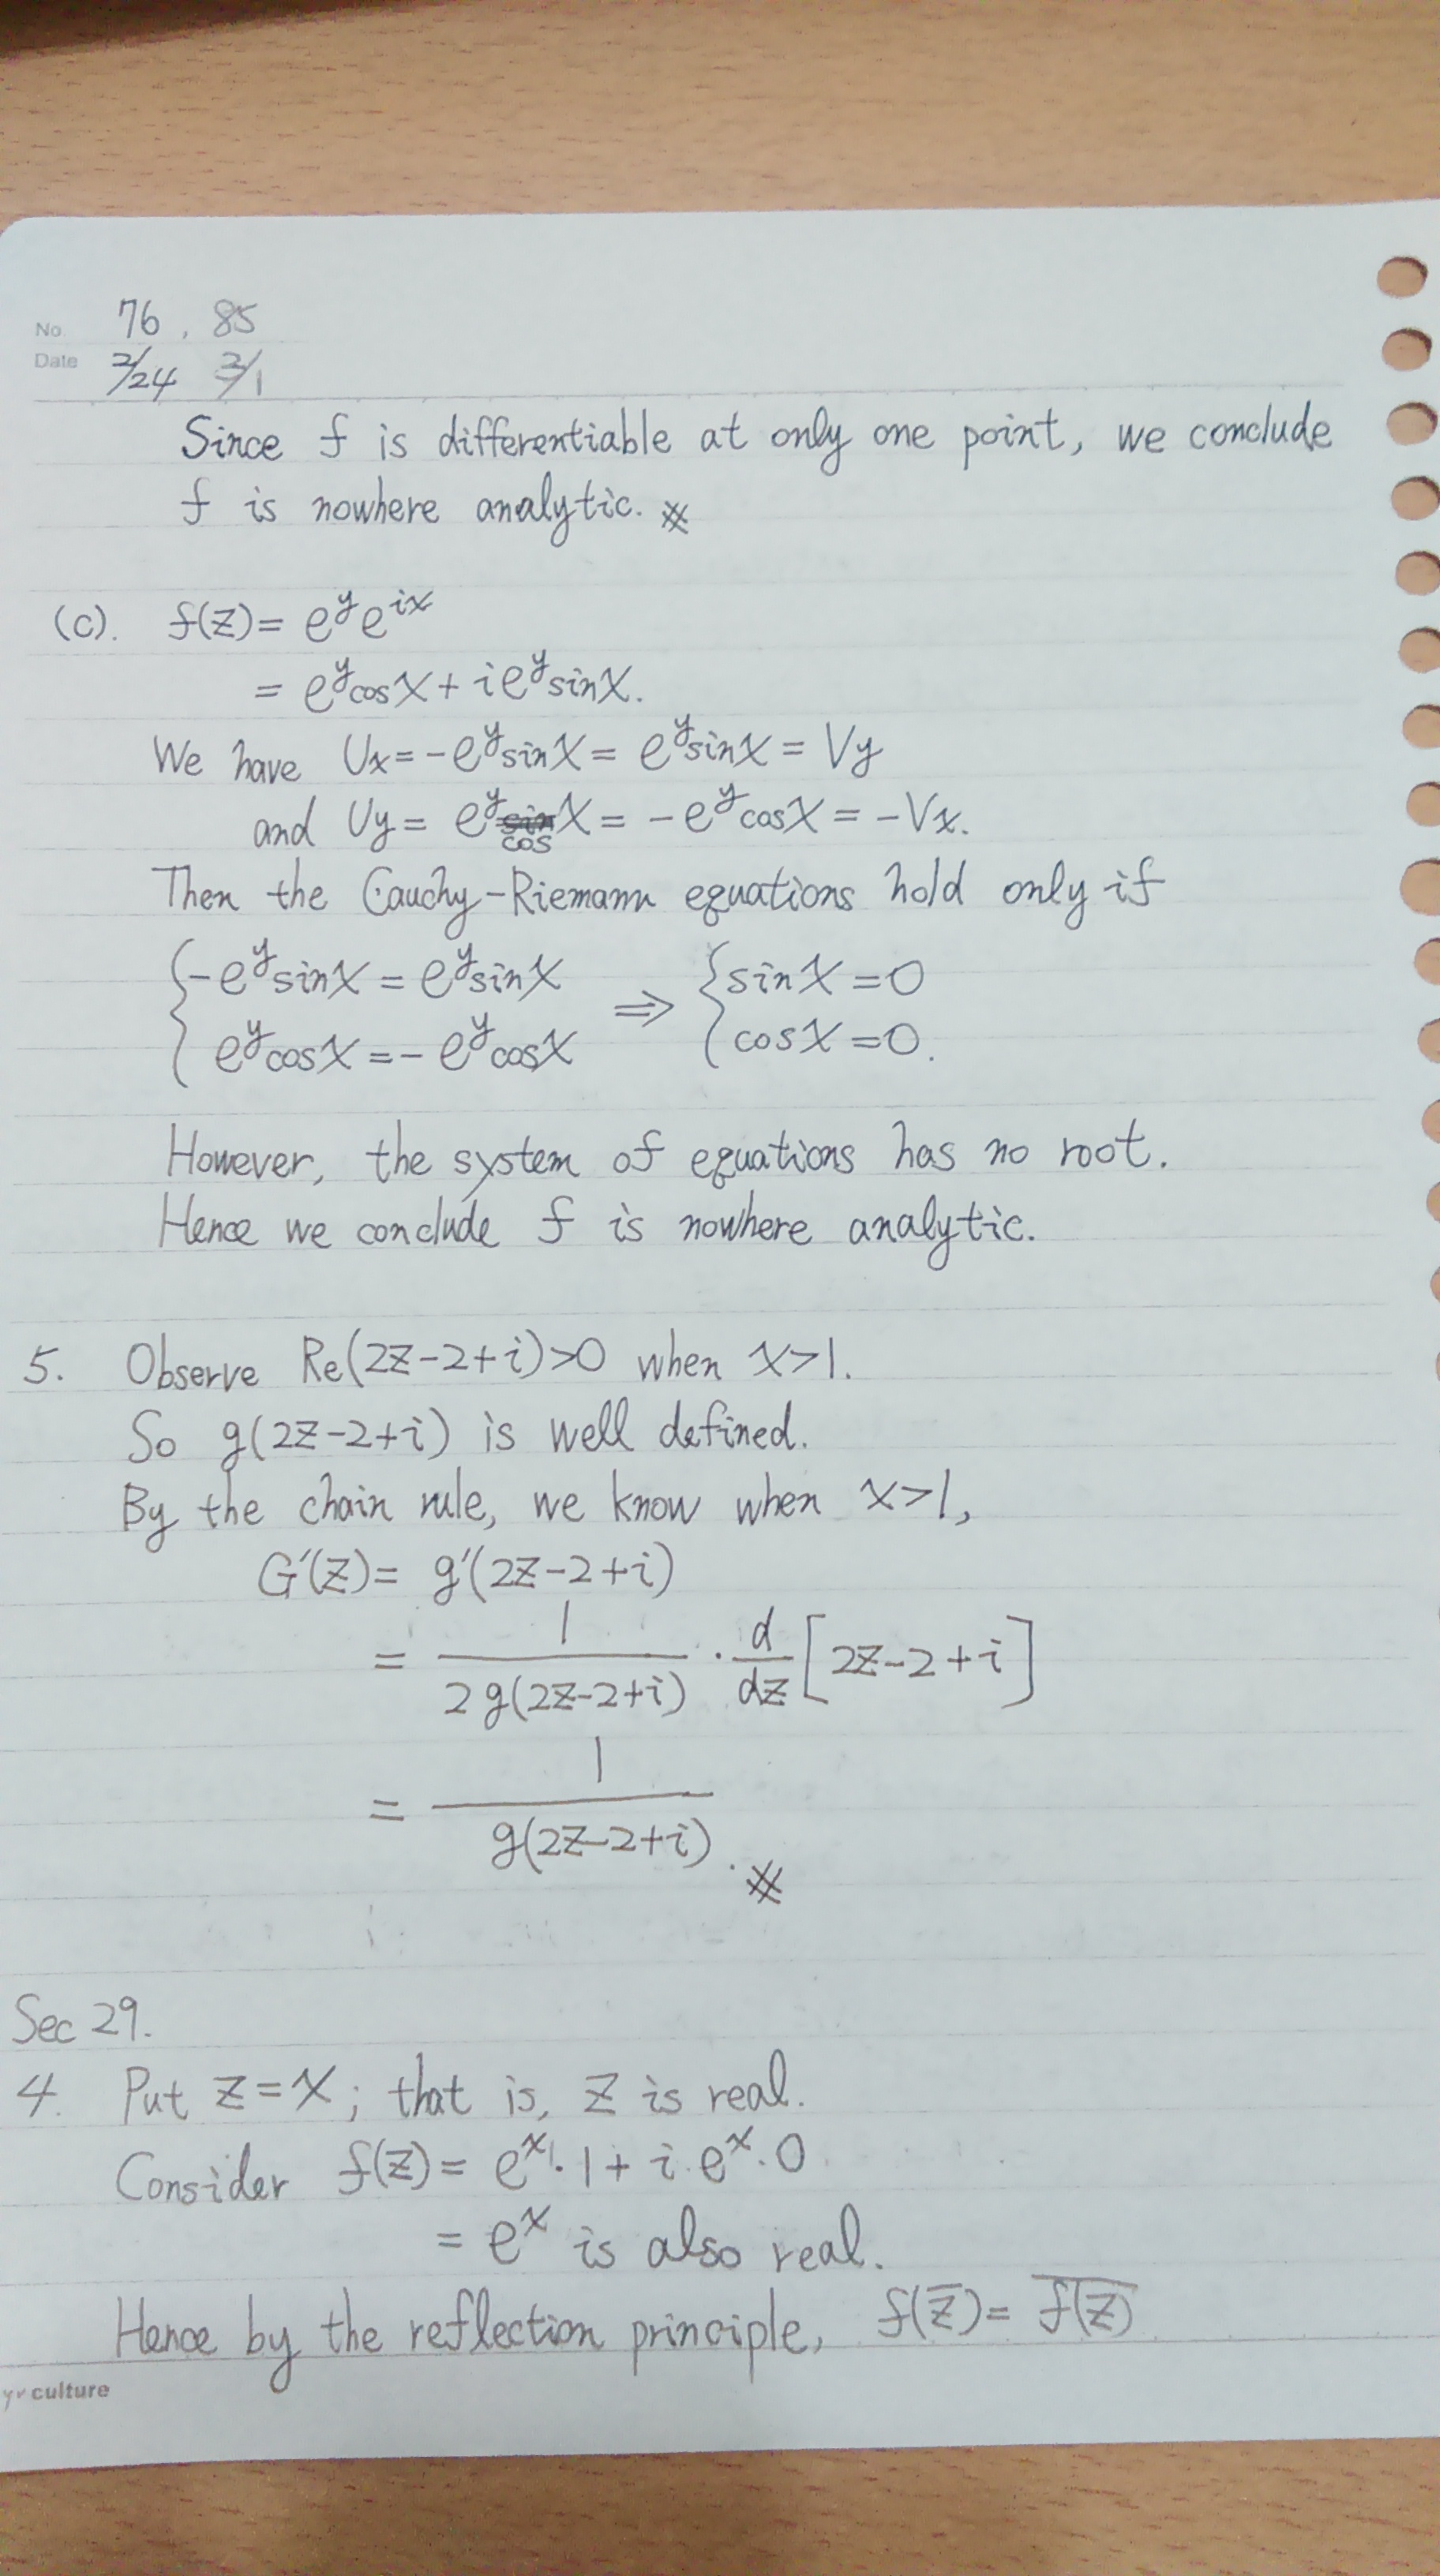 No. 76, 85
Date 2/24 3/1
Since f is differentiable at only one point, we conclude
f is nowhere analytic. ※
(c). f(z) = e^y e^{ix}
= e^y cos x + i e^y sin x.
We have Ux = -e^y sin x = e^y sin x = Vy
and Uy = e^y cos x = -e^y cos x = -Vx.
Then the Cauchy-Riemann equations hold only if
{ -e^y sin x = e^y sin x ⇒ { sin x = 0
e^y cos x = - e^y cos x cos x = 0.
However, the system of equations has no root.
Hence we conclude f is nowhere analytic.
5. Observe Re(2z-2+i)>0 when x>1.
So g(2z-2+i) is well defined.
By the chain rule, we know when x>1,
G'(z) = g'(2z-2+i)
= 1 / 2g(2z-2+i) · d/dz [2z-2+i]
= 1 / g(2z-2+i) . ※
Sec 29.
4. Put z = x ; that is, z is real.
Consider f(z) = e^x · 1 + i e^x · 0
= e^x is also real.
Hence by the reflection principle, f(z̅) = \overline{f(z)}
yr culture